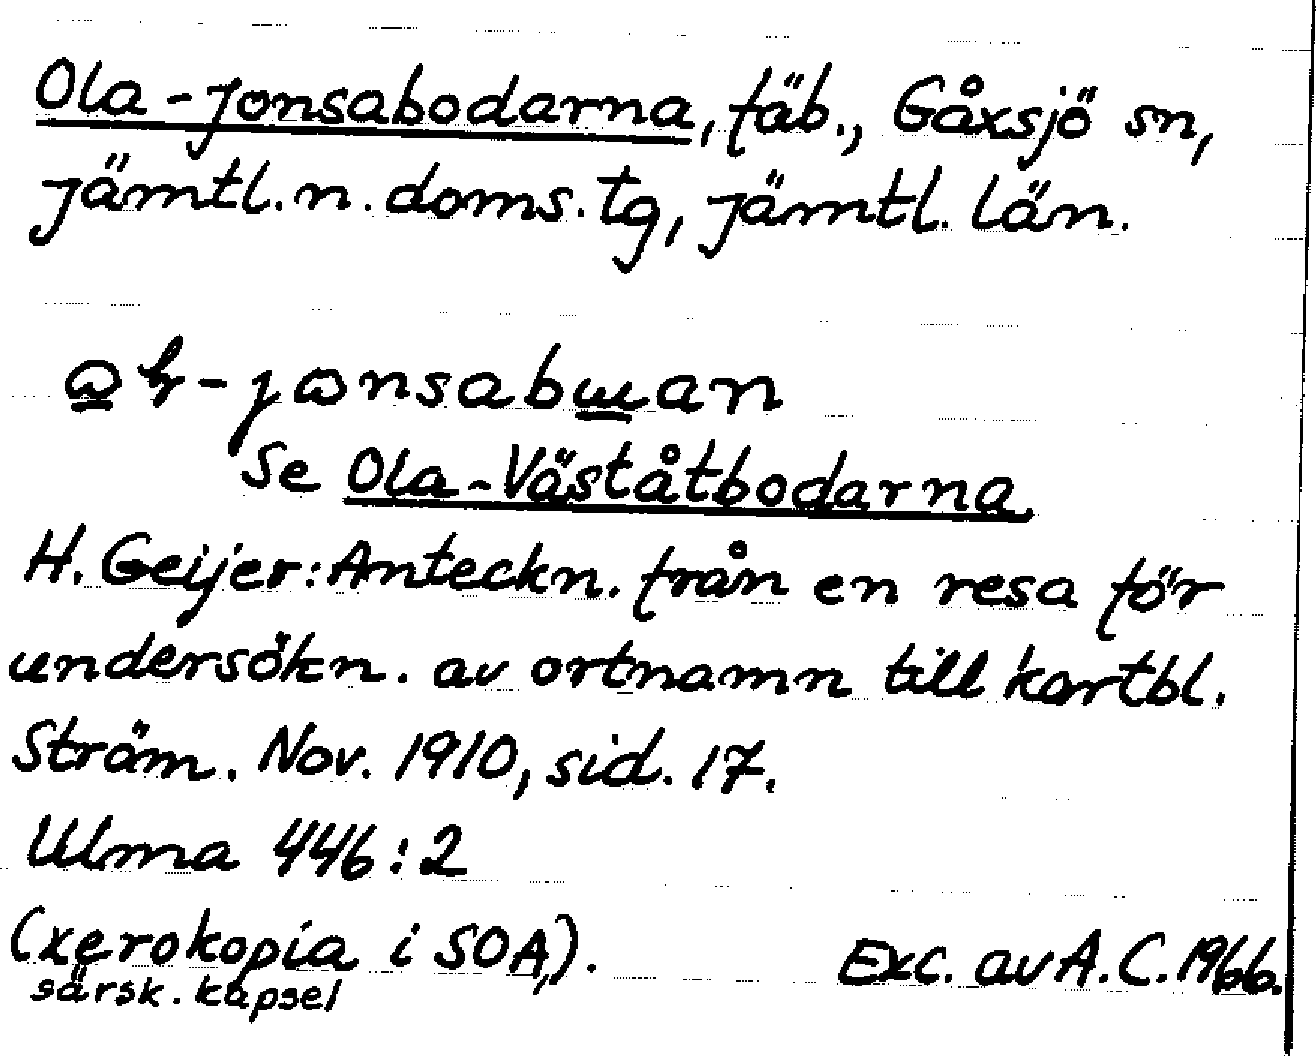 Ola-Jonsabodarna, fäb., Gåxsjö sn,
Jämtl. n. doms. tg, Jämtl. län.
Se Ola-Väståtbodarna
H. Geijer: Anteckn. från en resa för
undersökn. av ortnamn till kartbl.
Ström. Nov. 1910, sid. 17.
Ulma 446:2
(xerokopia i SOA,).
särsk. kapsel
Exc. av A. C. 1966.